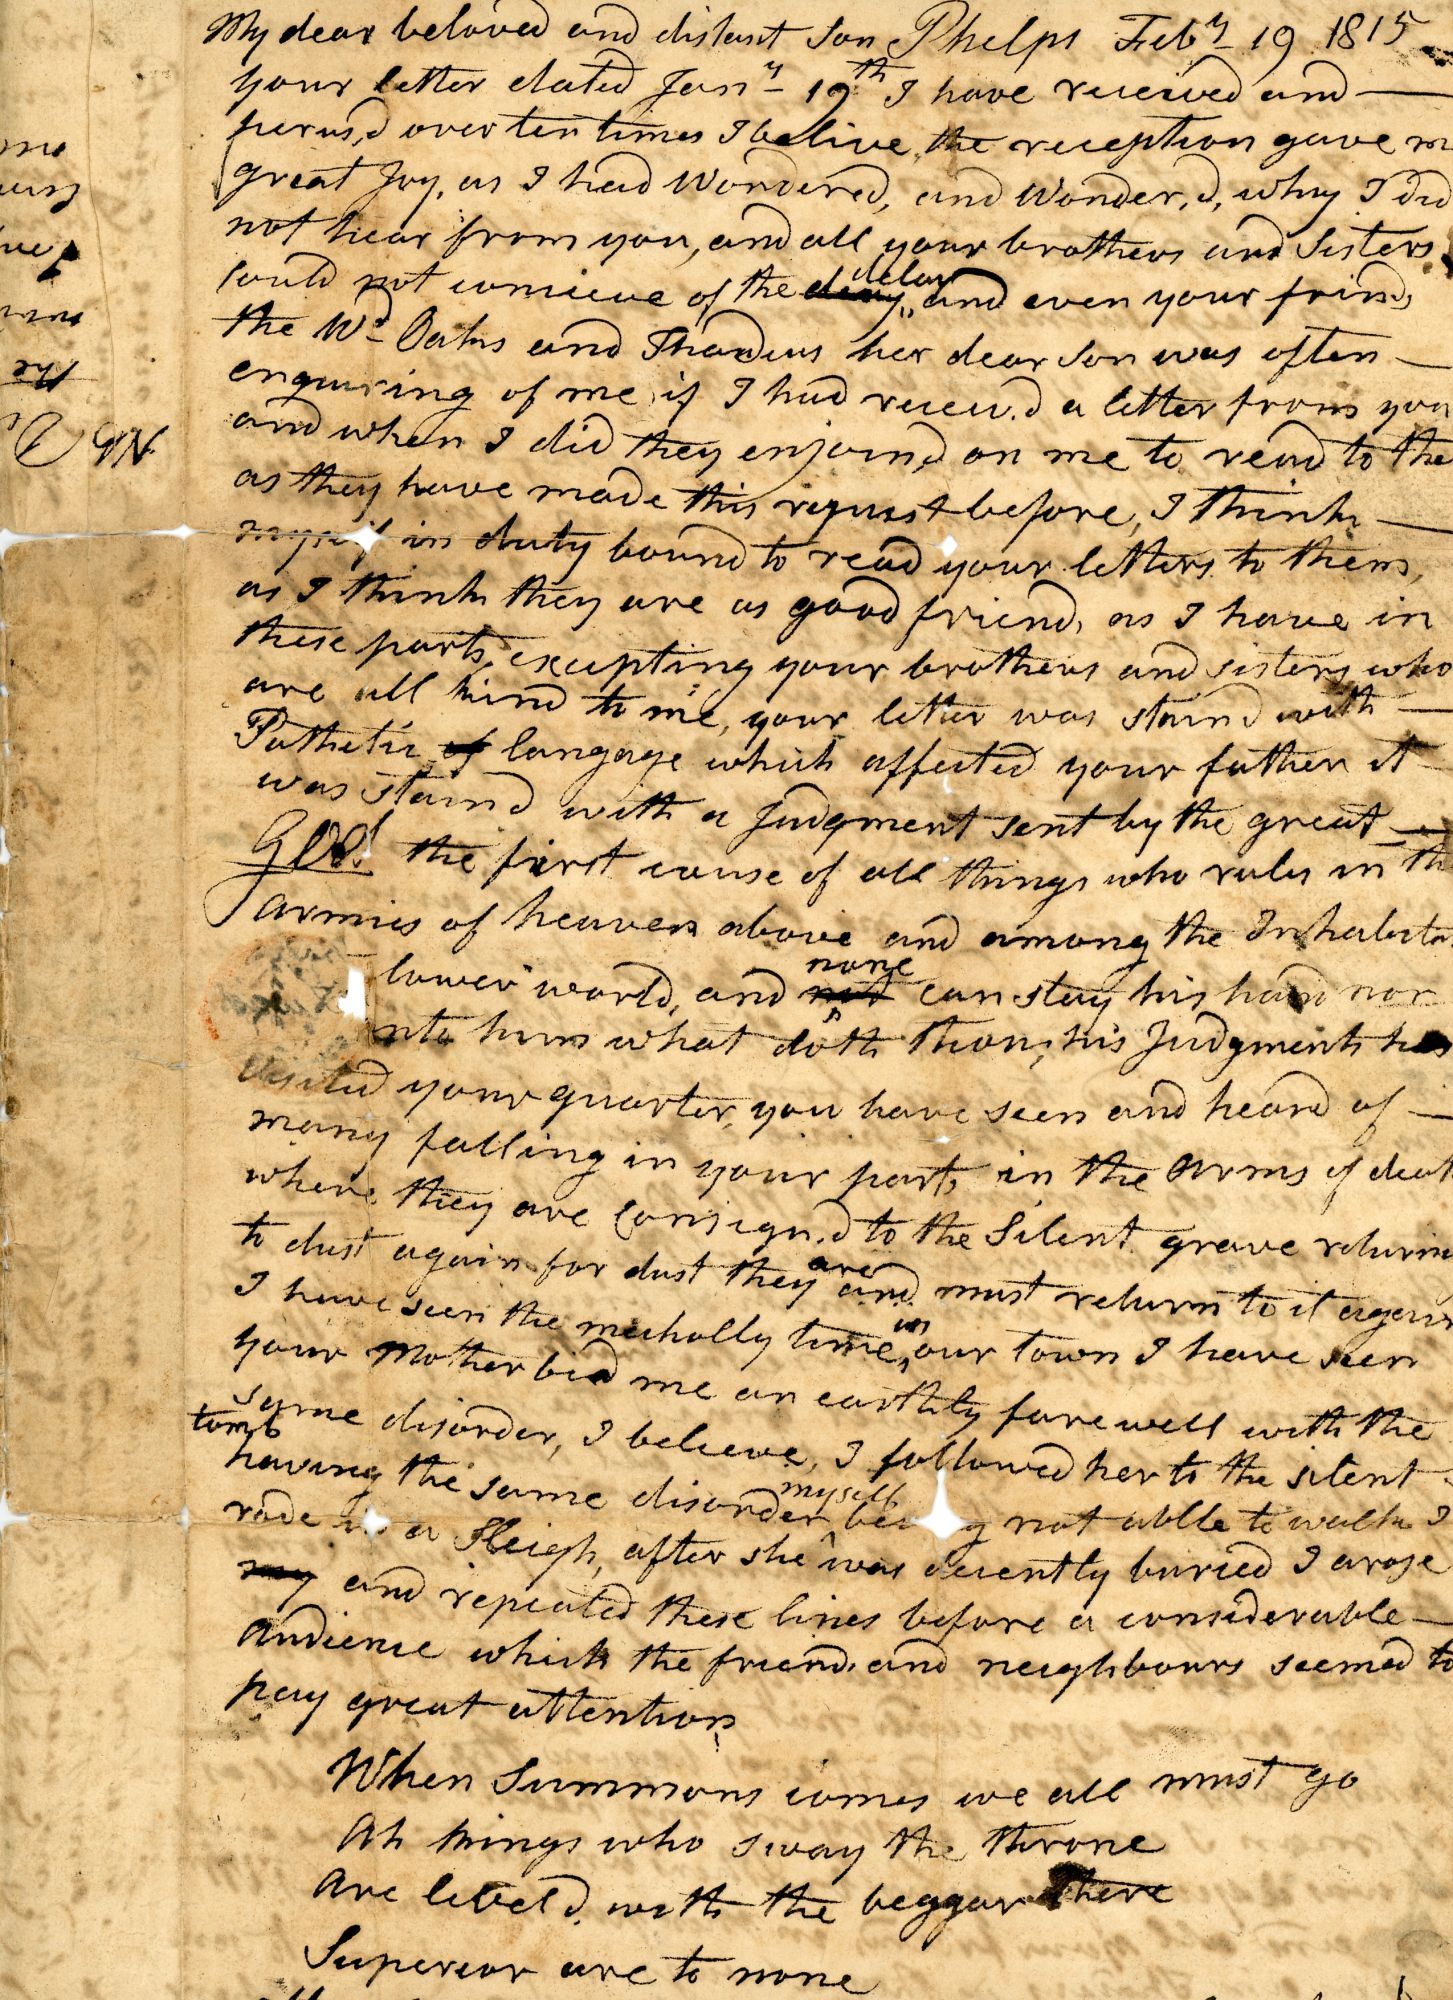 My dear beloved and distant Son Phelps Feb.y 19 1815
your letter dated Jan.y 19th I have received and
perus,d over ten times I belive the reception gave m
great Joy, as I had Wondered, and Wonder,d, why I did
not hear from you, and all your brothers and Sisters
Could not concieve of the delay, and even your frind,
the Wd Oaks and Thadeus her dear Son was often
enquiring of me, if I had receiv.d a letter from you
and when I did they enjoin,d on me to read to the
as they have made this request before, I think
myself in duty bound to read your letters to them,
as I think they are as good friend, as I have in
these parts, excepting your brothers and sisters who
are all kind to me, your letter was stain,d with
Pathetic of langage which affected your father it
was stain,d with a Judgment sent by the great
GOD! the first cause of all things who rules in th
armies of heaven above and among the Inhabita
lower world, and not none can stay his hand nor
nto him what doth thou, his Judgments has
visited your quarter, you have seen and heard of
many falling in your parts in the arms of deat
where they are Consign,d to the Silent grave returni
to dust again for dust they are and must return to it again
I have seen the mecholly time, in our town I have seen
your Mother bid me an earthly farewell with the
same disorder, I believe, I followed her to the silent
tomb
having the same disorder myself being not able to walk I
rode in a Sleigh, after she was decently buried I arose
my and repeated these lines before a considerable
Audience which the friend, and neighbours seemed to
pay great attention
When Summons comes we all must go
Ah kings who sway the throne
Are level,d with the beggar there
Superior are to none